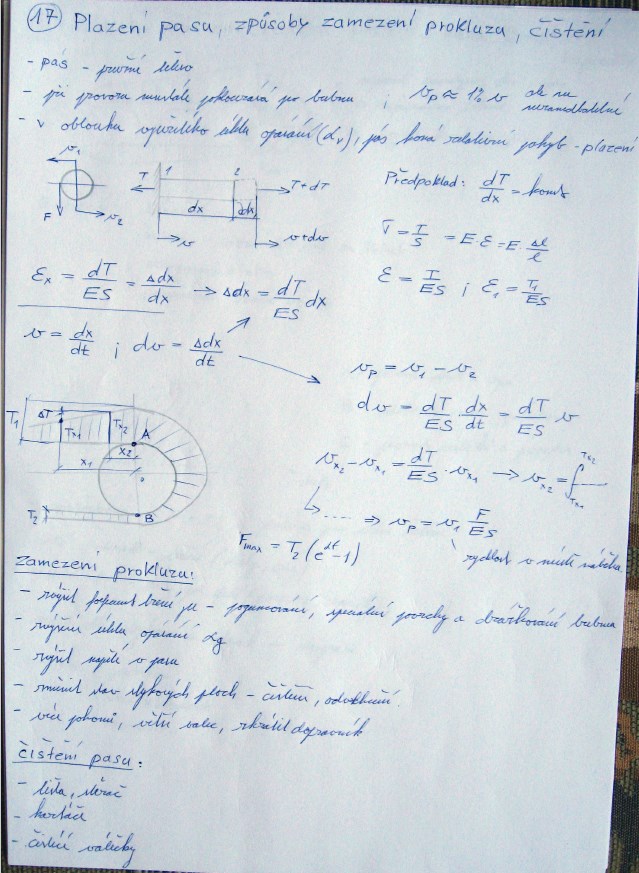 17 Plazení pasu, způsoby zamezení prokluzu, čištění
- pás - pružné těleso
- při provozu neustále poklouzává po bubnu ; v_p ≈ 1% v ale ne nezanedbatelné
- v oblouku využitého úhlu opásání (α_v), pás koná relativní pohyb - plazení
v_1
F
v_2
T 1 2 T+dT
dx Δdx
v v+dv
Předpoklad: dT/dx = konst
σ = T/S = E·ε = E·Δl/l
ε = T/ES ; ε_1 = T_1/ES
ε_x = dT/ES = Δdx/dx → Δdx = dT/ES dx
v = dx/dt ; dv = Δdx/dt
v_p = v_1 - v_2
dv = dT/ES · dx/dt = dT/ES v
v_x2 - v_x1 = dT/ES · v_x1 → v_x2 = ∫ T_x1 T_x2
..... ⇒ v_p = v_1 F/ES
rychlost v místě náběhu
T_1 ΔT T_x1 T_x2 A
x_1 x_2
T_2 B
F_max = T_2 (e^αf - 1)
Zamezení prokluzu:
- zvýšit součinitel tření μ - pogumování, speciální povrchy a drážkování bubnu
- zvýšení úhlu opásání α_g
- zvýšit napětí v pasu
- změnit stav stykových ploch - čištění, odvlhčení.
- více pohonů, větší válec, zkrátit dopravník
čištění pasu:
- lišta, stěrač
- kartáče
- čistící válečky